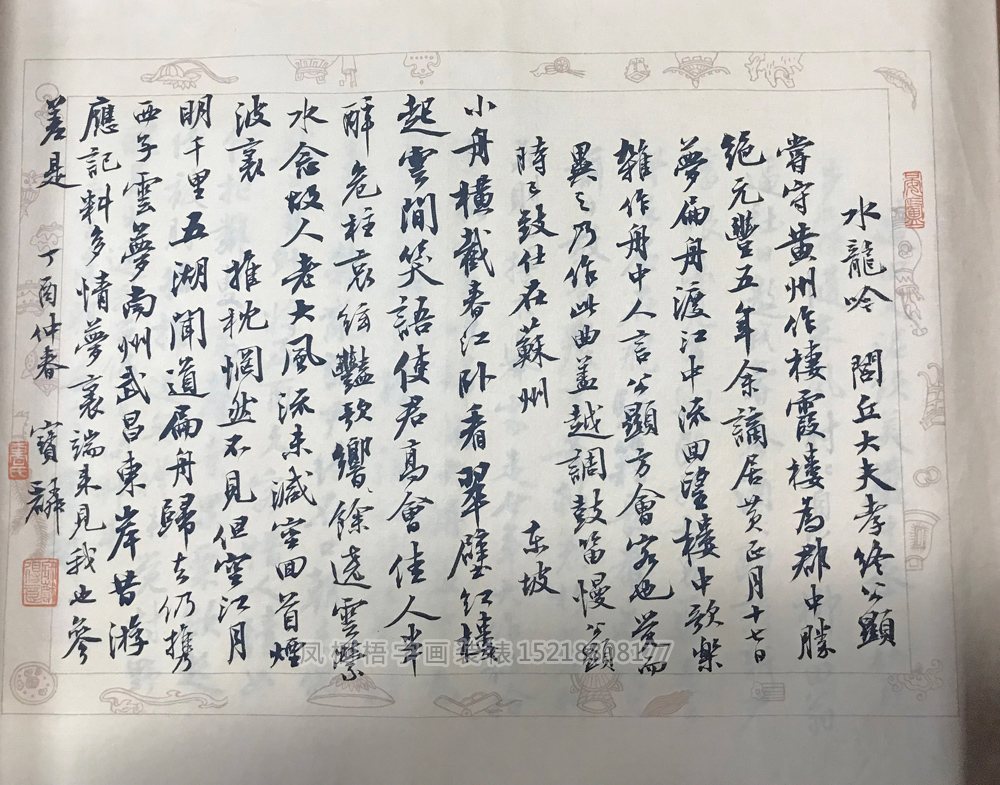 水龍吟　閭丘大夫孝終公顯
嘗守黃州作棲霞樓為郡中勝
絕元豐五年余謫居黃正月十七日
夢扁舟渡江中流回望樓中歌樂
雜作舟中人言公顯方會客也覺而
異之乃作此曲蓋越調鼓笛慢公顯
時已致仕在蘇州　東坡
小舟橫截春江卧看翠壁紅樓
起雲間笑語使君高會佳人半
醉危柱哀絃豔歌響餘遶雲縈
水念故人老大風流未減空回首煙
波裏　推枕惘然不見但空江月
明千里五湖聞道扁舟歸去仍携
西子雲夢南州武昌東岸昔游
應記料多情夢裏端来見我也參
差是　丁酉仲春　寶麟
凤栖梧字画装裱 15218808177